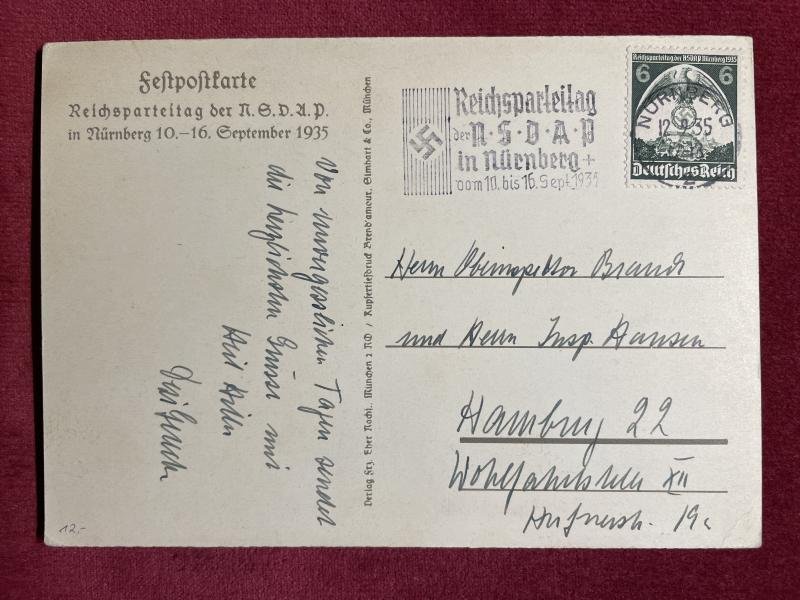 Festpostkarte
Reichsparteitag der N.S.D.A.P.
in Nürnberg 10.–16. September 1935
Von unvergesslichen Tagen sendet
die herzlichsten Grüsse mit
Heil Hitler
Verlag Frz. Eher Nachf., München 2 NO / Kupfertiefdruck Brend'amour, Simhart & Co., München
Reichsparteitag
der N·S·D·A·P
in Nürnberg +
vom 10. bis 16. Sept. 1935
Reichsparteitag der NSDAP Nürnberg 1935
6 6
NÜRNBERG
12.9.35
2
Deutsches Reich
Herrn Oberinspektor Brandt
und Herrn Insp. Hansen
Hamburg 22
Wohlfahrtstelle XII
Hufnerstr. 19c
12,-